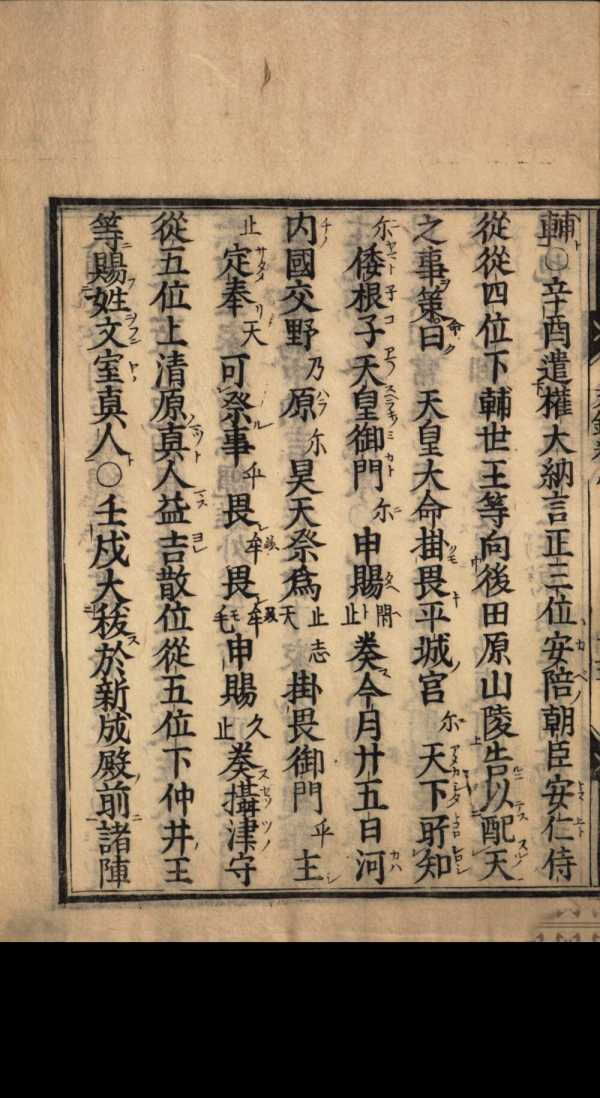 輔○辛酉遣權大納言正三位安陪朝臣安仁侍
從從四位下輔世王等向後田原山陵告以配天
之事策曰天皇大命掛畏平城宮尓天下所知
尓倭根子天皇御門尓申賜閇止奏今月廿五日河
内國交野乃原尓昊天祭爲止志天掛畏御門乎主
止定奉天可祭事乎畏牟畏牟毛申賜久止奏攝津守
從五位上清原真人益吉散位從五位下仲井王
等賜姓文室真人○壬戌大秡於新成殿前諸陣